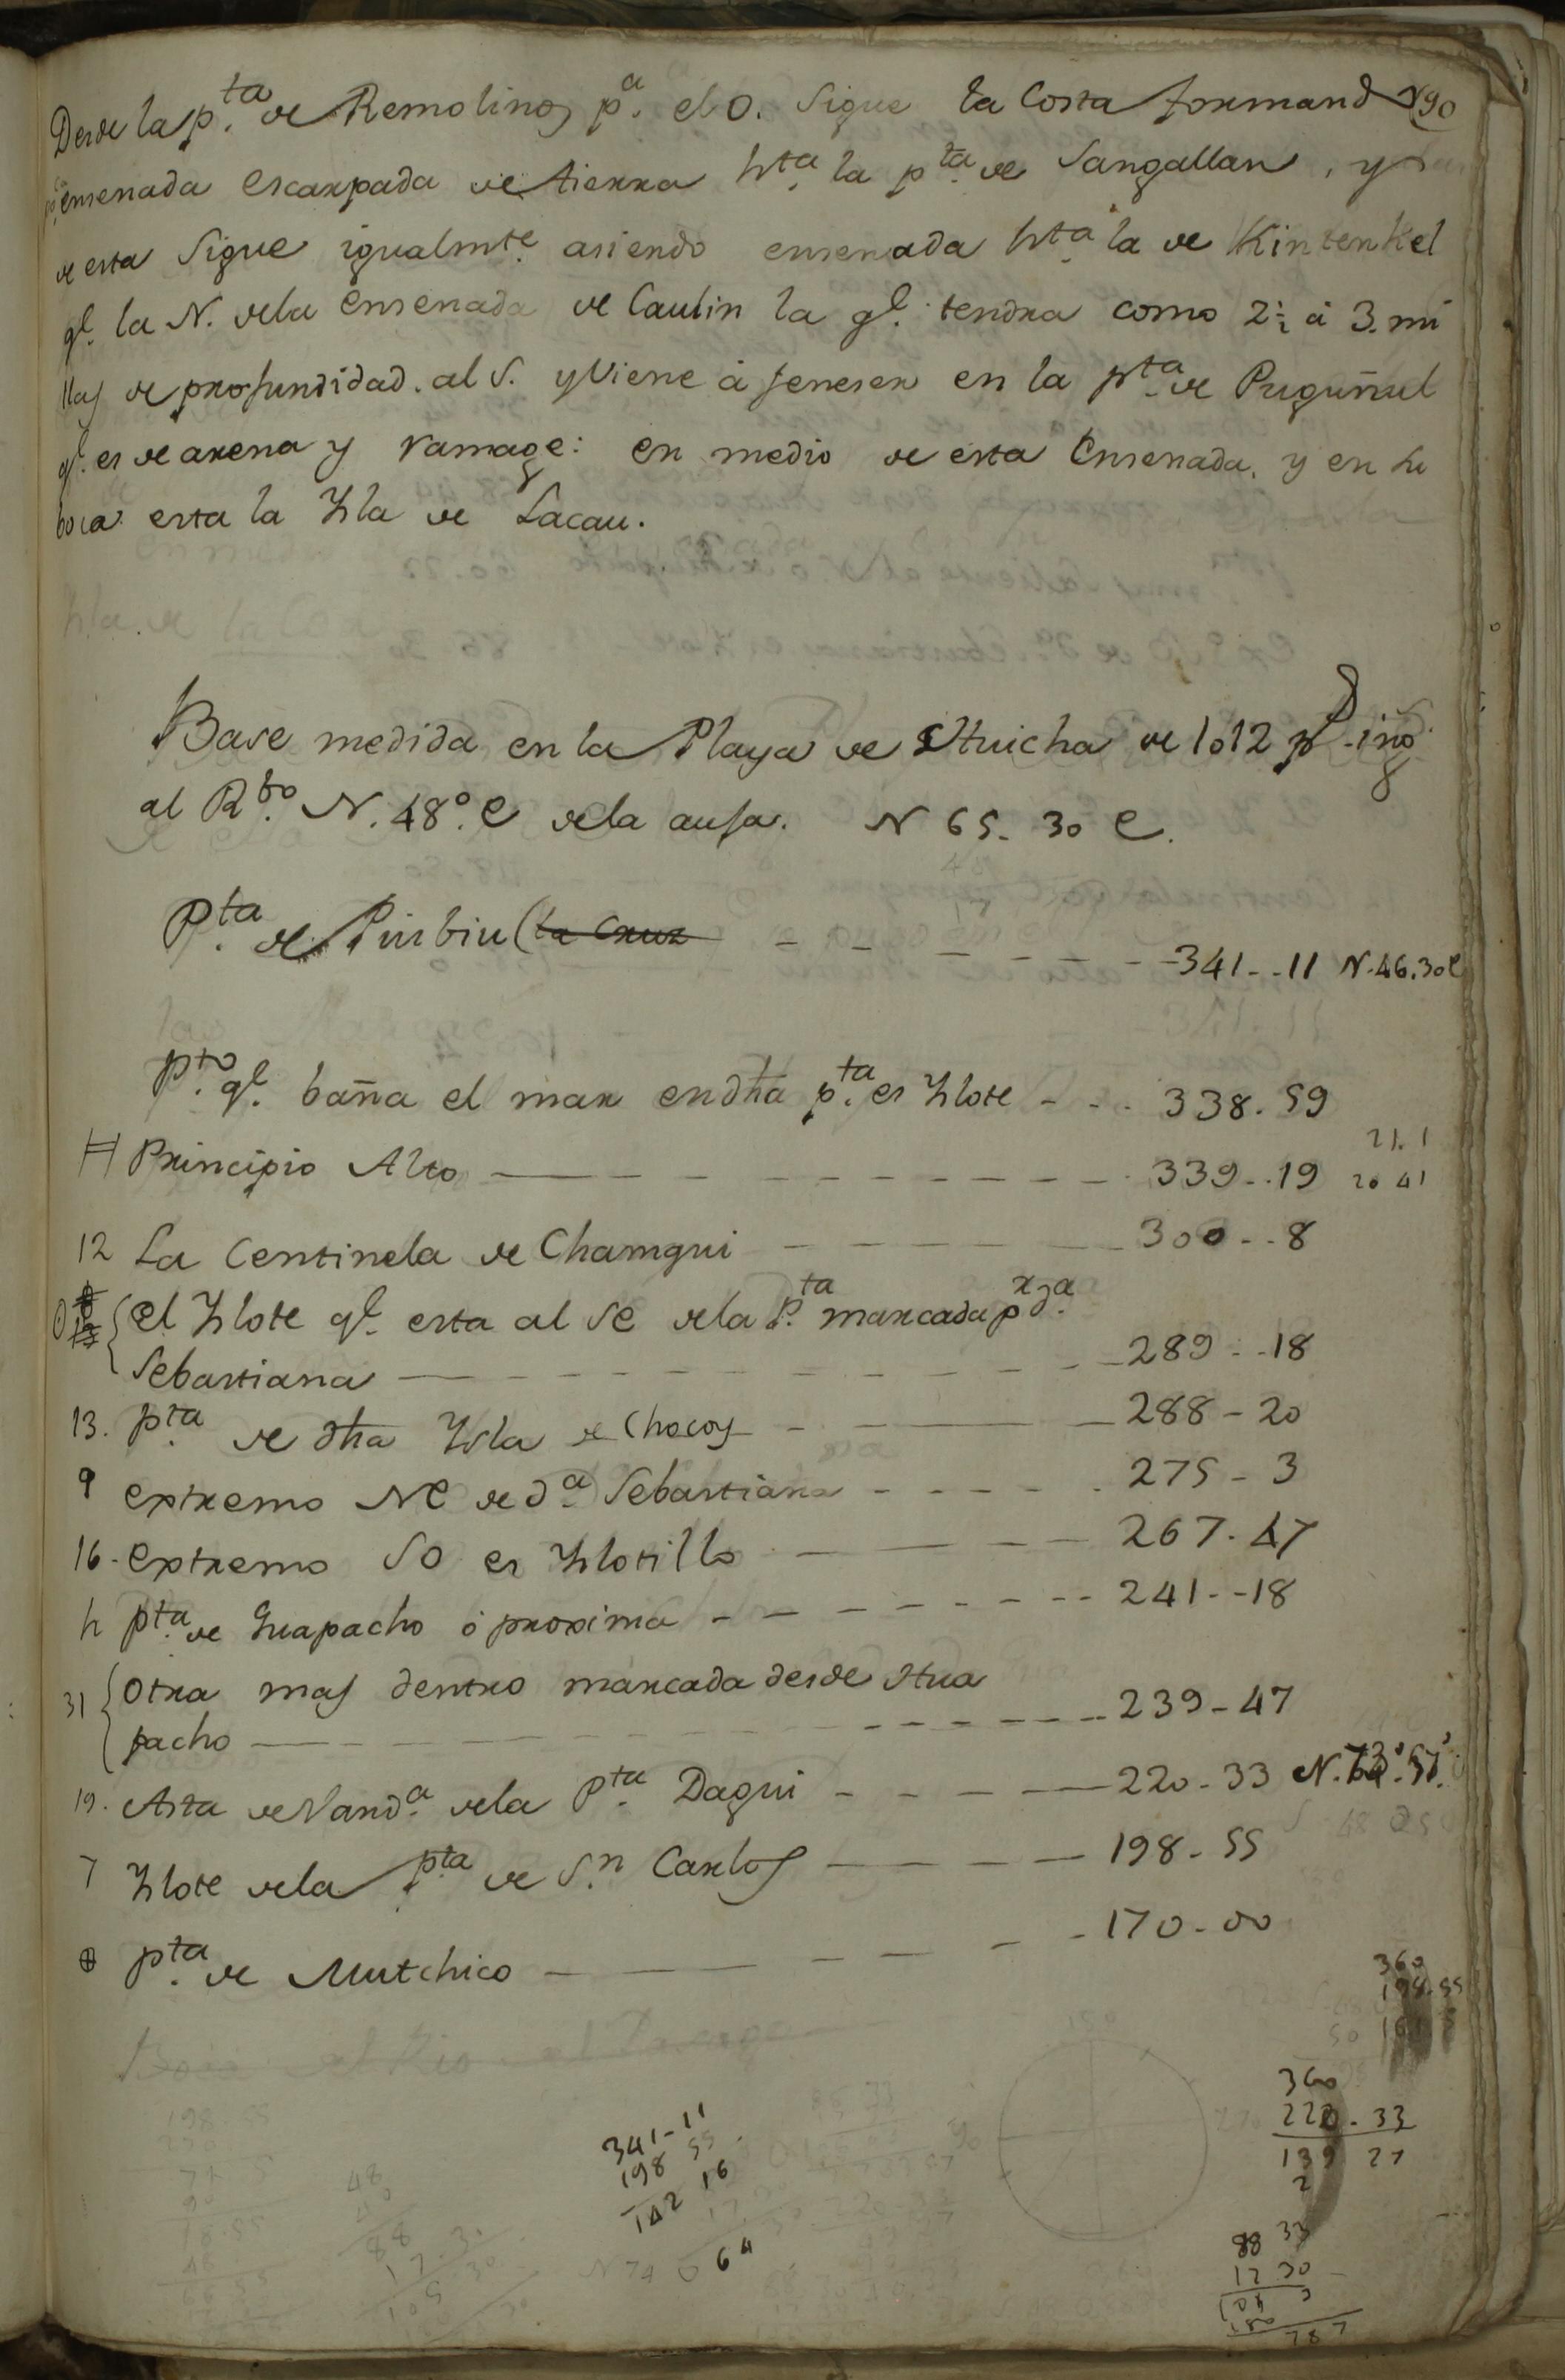 Desde la p.ta de Remolinos p.a el O. sigue la Costa formand
ensenada escarpada de tierra hta. la pta. de Sangallan, y
de esta sigue igualmte. asiendo ensenada hta. la de Kintenkel
ql. la N. dela ensenada de Caulin la ql. tendra como 2½ á 3. mi
llas de profundidad. al S. y Viene á feneser en la pta. de Puguñul
ql. es de arena y ramage: en medio de esta Ensenada, y en su
boca esta la Ysla de Lacau.
190
Base medida en la Playa de Huicha de 1012 ps
al R.bo N. 48°. E dela aufa. N 65. 30 E.
P.ta de Piusbiu (la Cruz - - - - - - 341 - - 11 N. 46. 30 E
P.to ql. baña el mar en dha p.ta es Yslote - - - 338. 59
21. 1
H Principio Alto - - - - - - - 339 - . 19 20 41
12 La Centinela de Chamgui - - - - 300 - - 8
{ El Yslote ql. esta al SE dela P.ta marcada p.r d.a
Sebastiana - - - - - - 289 - - 18
13. pta. de dha Ysla de Chocoy - - - 288 - 20
9 extremo NE de d.a Sebastiana - - - - . 275 - 3
16 - extremo SO es Yslotillo - - - - 267. 47
h pta. de Guapacho ó proxima - - - - - - - 241 - - 18
31 { Otra mas dentro marcada desde Hua
pacho - - - - - - - - - 239 - 47
19. Asta de Vand.a dela P.ta Dagui - - - - 220 - 33
7 Yslote dela pta. de S.n Carlos - - - - 198 - 55
⊕ pta. de Mutchico - - - - - - 170 - 00
360
198. 55
360
220. 33
139 27
2
341 - 11
198 55
142 16
64
88 33
17 30
787